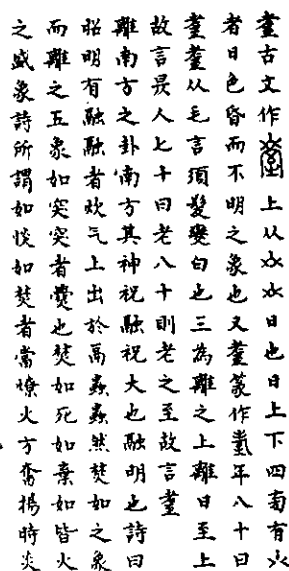 耋古文作上从屮屮日也日上下四面有屮
者日色昏而不明之象也又耋篆作年八十曰
耋耋从毛言須髮變白也三為離之上離日至上
故言晨人七十曰老八十則老之至故言耋
離南方之卦南方其神祝融祝大也融明也詩曰
昭明有融融者炊气上出於鬲蟲蟲然焚如之象
而離之五象如突突者竈也焚如死如棄如皆火
之盛象詩所謂如惔如焚者當燎火方奮揚時炎